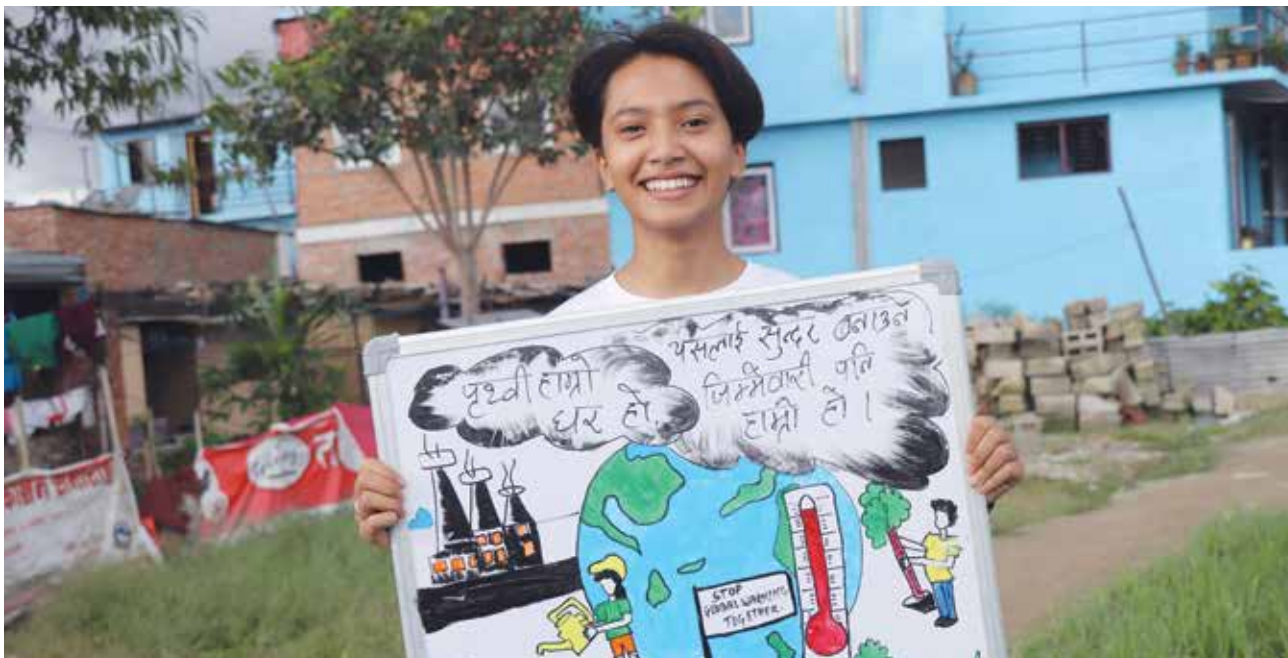 पृथ्वी हाम्रो
घर हो
यसलाई सुन्दर बनाउने
जिम्मेवारी पनि
हाम्रो हो ।
STOP
GLOBAL WARMING
TOGETHER.